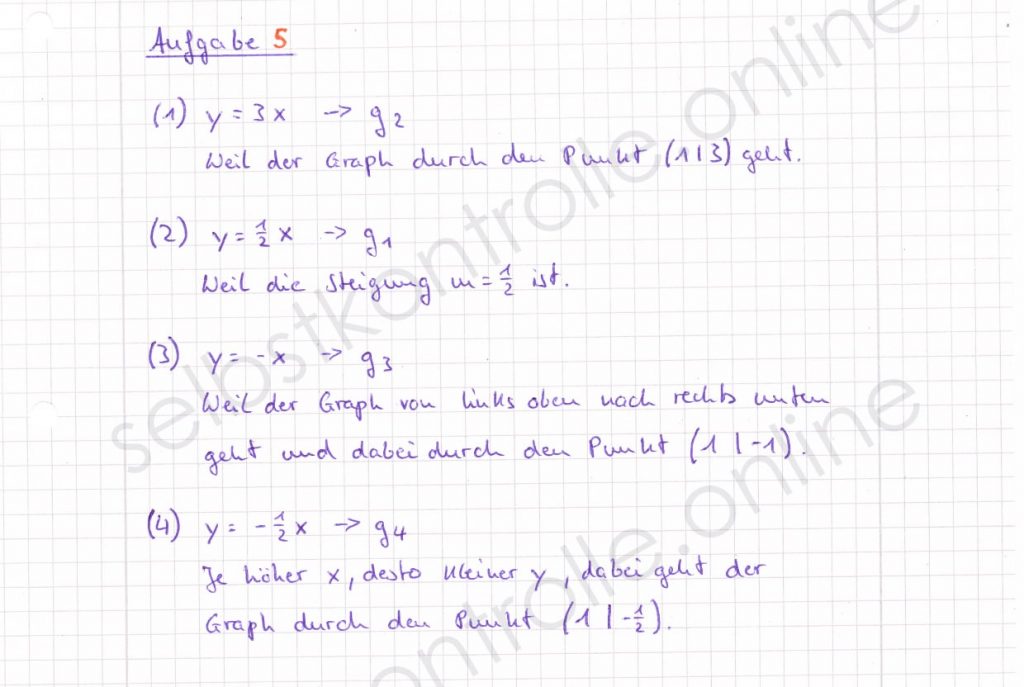 Aufgabe 5
(1) y = 3x -> g2
Weil der Graph durch den Punkt (1|3) geht.
(2) y = 1/2 x -> g1
Weil die Steigung m = 1/2 ist.
(3) y = -x -> g3
Weil der Graph von links oben nach rechts unten
geht und dabei durch den Punkt (1|-1).
(4) y = -1/2 x -> g4
Je höher x, desto kleiner y, dabei geht der
Graph durch den Punkt (1|-1/2).
selbstkontrolle.online
selbstkontrolle.online